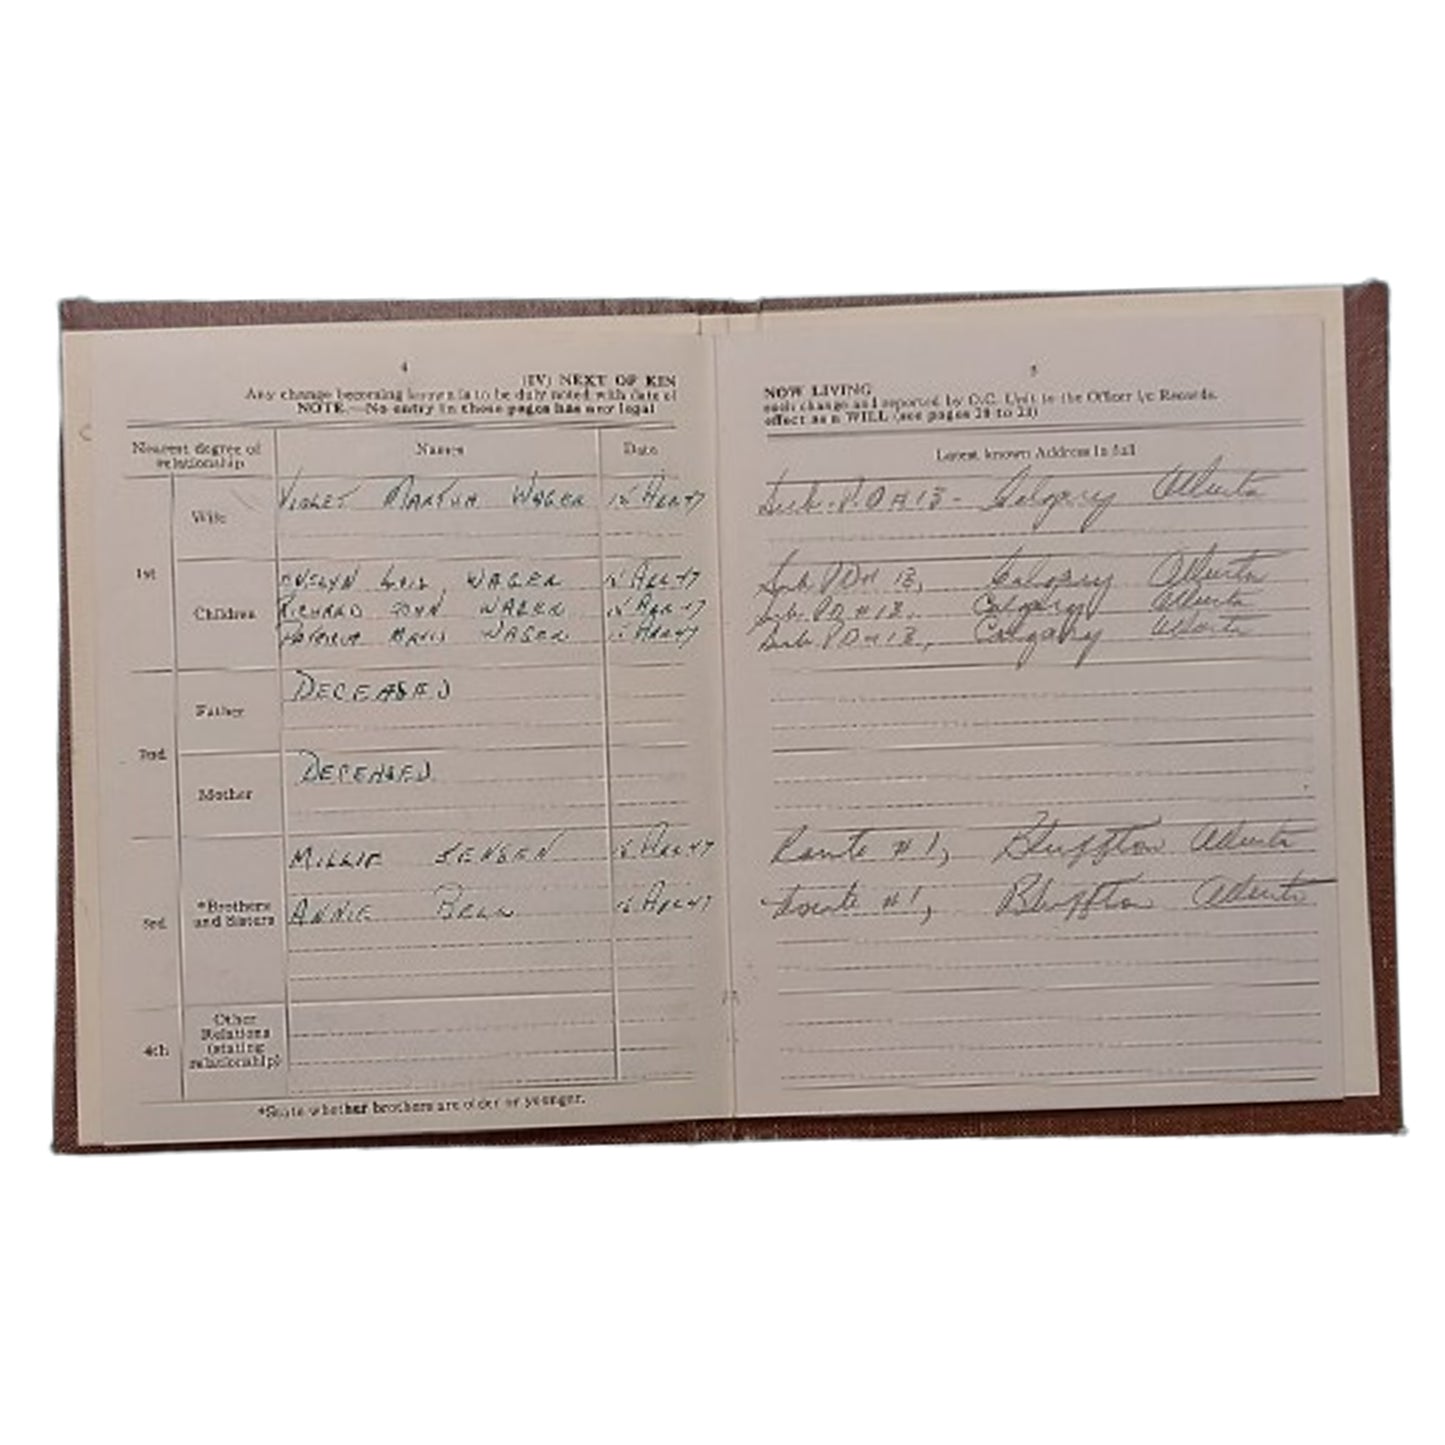 4
(IV) NEXT OF KIN
Any change becoming known is to be duly noted with date of
NOTE.—No entry in these pages has any legal
Nearest degree of relationship
Names
Date
1st
Wife
VIOLET MARTHA WAGER 15 APR 47
Children
EVELYN LOIS WAGER 15 APR 47
RICHARD JOHN WAGER 15 APR 47
PATRICIA MAVIS WAGER 15 APR 47
2nd
Father
DECEASED
Mother
DECEASED
3rd
*Brothers and Sisters
MILLIE JENSEN 15 APR 47
ANNIE BELL 15 APR 47
4th
Other Relations (stating relationship)
*State whether brothers are older or younger.
5
NOW LIVING
each change and reported by O.C. Unit to the Officer i/c Records.
effect as a WILL (see pages 20 to 23)
Latest known Address in full
Calgary Alberta
Calgary Alberta
Calgary Alberta
Calgary Alberta
Route #1, Bluffton Alberta
Route #1, Bluffton Alberta